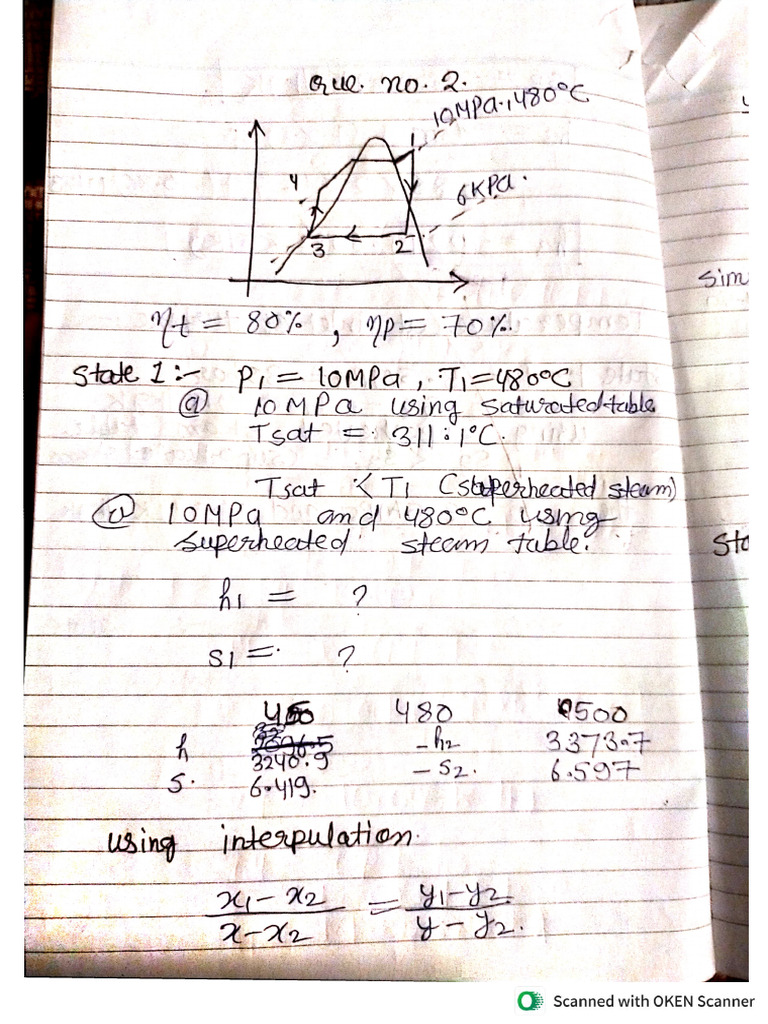 Que. no. 2.
10MPa, 480°C
1
4
6KPa.
3
2
ηt = 80% , ηp = 70%.
State 1 :- P1 = 10MPa , T1 = 480°C
@ 10 MPa using saturated table
Tsat = 311.1°C.
Tsat < T1 (superheated steam)
@ 10MPa and 480°C using
superheated steam table.
h1 = ?
S1 = ?
450 480 500
h 3240.9 - h2 3373.7
S. 6.419. - S2. 6.597
using interpulation.
x1 - x2 / x - x2 = y1 - y2. / y - y2.
Sim
Sta
Scanned with OKEN Scanner